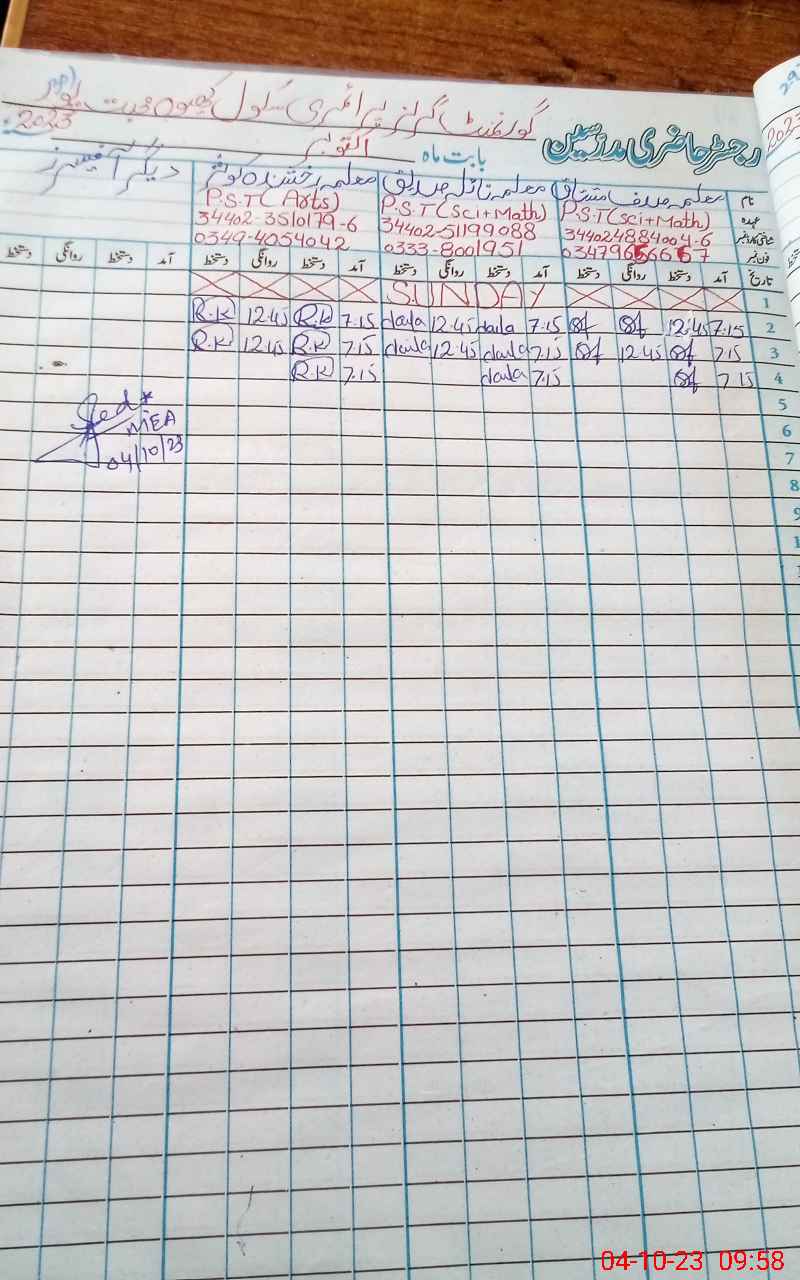 گورنمنٹ گرلز پرائمری سکول
رجسٹر حاضری مدرسین
بابت ماہ اکتوبر 2023
نام معلمہ صدف مشتاق معلمہ نائلہ صدیق معلمہ رخشندہ کوثر دیگر آفیسرز
عہدہ P.S.T (Sci+Math) P.S.T (Sci+Math) P.S.T (Arts)
شناختی کارڈ نمبر 34402-51199088 34402-3510179-6
فون نمبر 0333-8001951 0349-4054042
تاریخ آمد دستخط روانگی دستخط آمد دستخط روانگی دستخط آمد دستخط روانگی دستخط آمد دستخط روانگی دستخط
1 SUNDAY
2 7.15 12.45 7.15 12.45 7.15 R.K 12.45 R.K
3 7.15 12.45 7.15 12.45 7.15 R.K 12.45 R.K
4 7.15 7.15 7.15 R.K
5
6
7
8
9
MEA
04/10/23
04-10-23 09:58